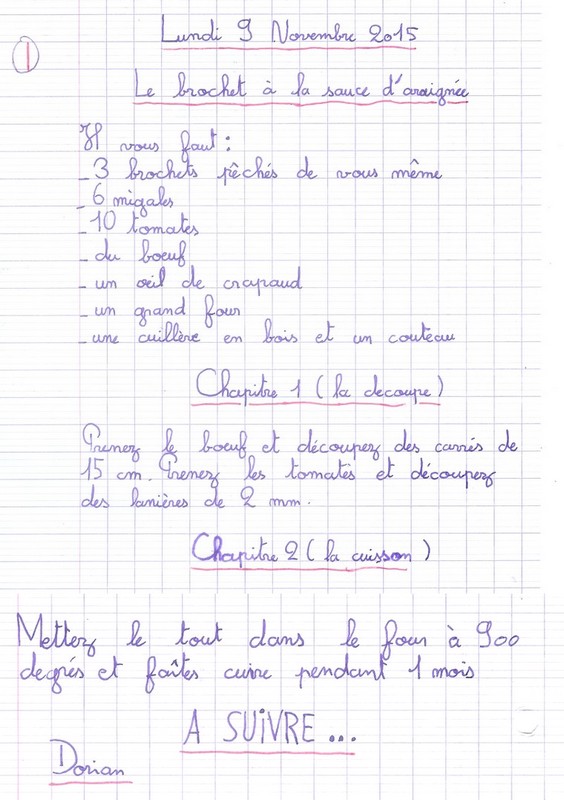 Lundi 9 Novembre 2015
1
Le brochet à la sauce d'araignée
Il vous faut :
- 3 brochets pêchés de vous même
- 6 migales
- 10 tomates
- du boeuf
- un oeil de crapaud
- un grand four
- une cuillère en bois et un couteau
Chapitre 1 ( la decoupe )
Prenez le boeuf et découpez des carrés de
15 cm. Prenez les tomates et découpez
des lanières de 2 mm.
Chapitre 2 ( la cuisson )
Mettez le tout dans le four à 900
degrés et faîtes cuire pendant 1 mois
A SUiVRE ...
Dorian